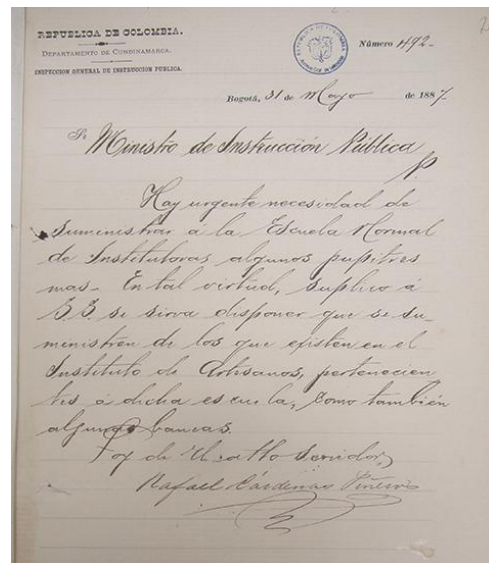 REPUBLICA DE COLOMBIA.
DEPARTAMENTO DE CUNDINAMARCA.
INSPECCION GENERAL DE INSTRUCCION PUBLICA.
Número 492-
Bogotá, 31 de Mayo de 1887
Sr. Ministro de Instrucción Pública
P
Hay urgente necesidad de
suministrar á la Escuela Normal
de Institutoras algunos pupitres
mas. En tal virtud, suplico á
S.S. se sirva disponer que se su
ministren de los que existen en el
Instituto de Artesanos, pertenecien
tes á dicha escuela, como también
algunas bancas.
Soy de U. atto servidor,
Rafael Cárdenas Piñeros